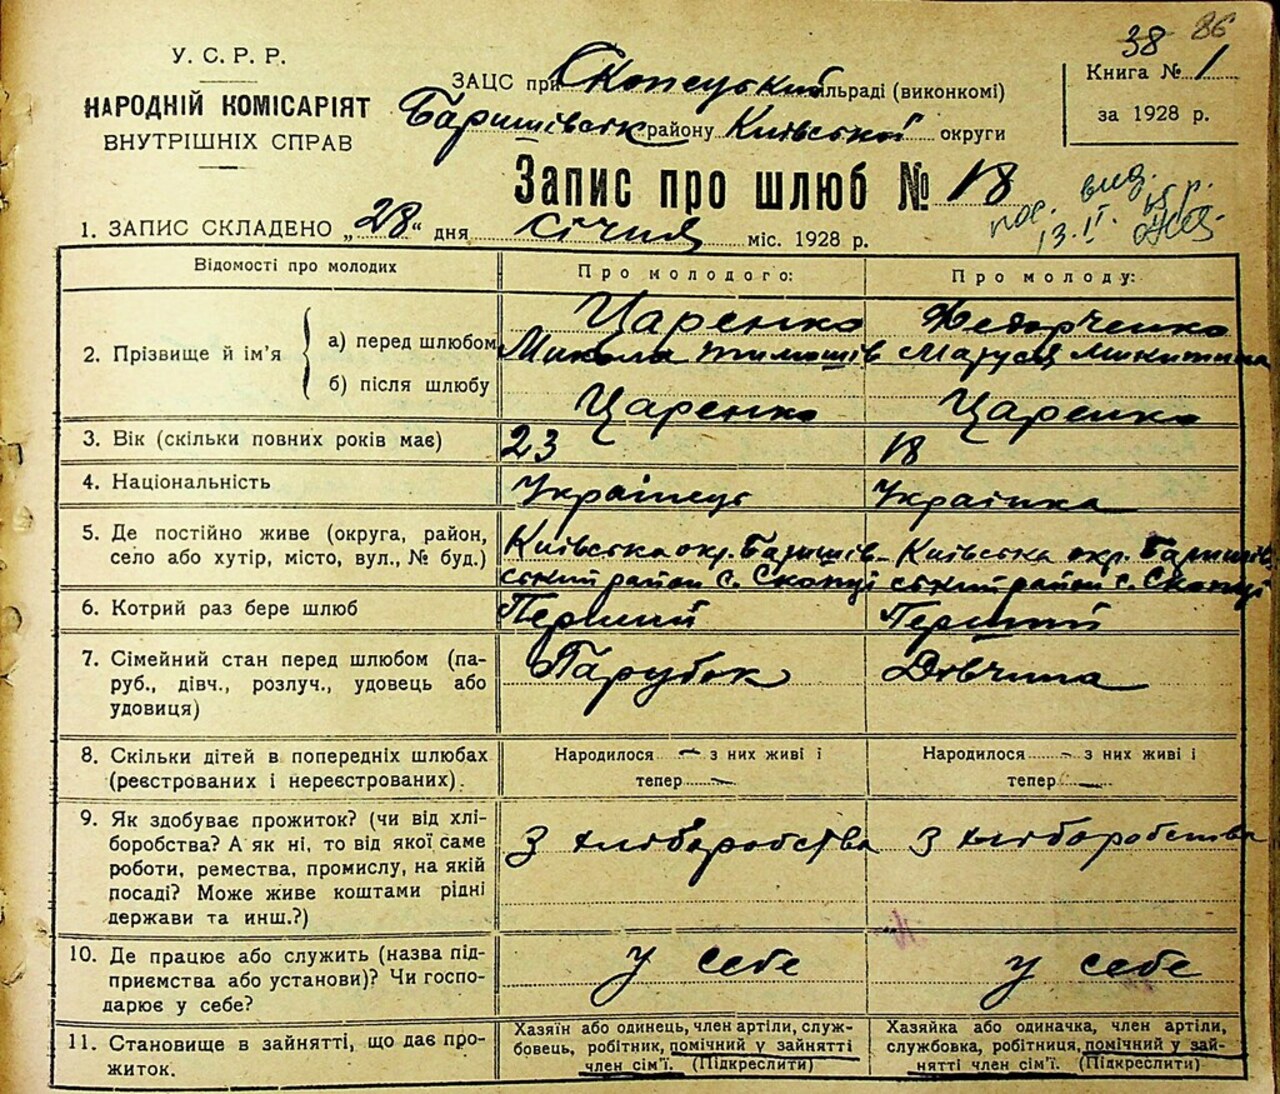 38 86
У. С. Р. Р.
НАРОДНІЙ КОМІСАРІЯТ
ВНУТРІШНІХ СПРАВ
ЗАЦС при Скопецький сільраді (виконкомі)
Баришівськ району Київської округи
Книга № 1
за 1928 р.
Запис про шлюб № 18
13. II.
1. ЗАПИС СКЛАДЕНО „28“ дня січня міс. 1928 р.
Відомості про молодих
Про молодого:
Про молоду:
2. Прізвище й ім'я
а) перед шлюбом
Царенко
Микола Тимошів
Федорченко
Маруся Микитина
б) після шлюбу
Царенко
Царенко
3. Вік (скільки повних років має)
23
18
4. Національність
Українець
Українка
5. Де постійно живе (округа, район,
село або хутір, місто, вул., № буд.)
Київська окр. Баришів-
ський район с. Скопці
Київська окр. Баришів
ський район с. Скопці
6. Котрий раз бере шлюб
Перший
Перший
7. Сімейний стан перед шлюбом (па-
руб., дівч., розлуч., удовець або
удовиця)
Парубок
Дівчина
8. Скільки дітей в попередніх шлюбах
(реєстрованих і нереєстрованих).
Народилося — з них живі і
тепер —
Народилося — з них живі і
тепер —
9. Як здобуває прожиток? (чи від хлі-
боробства? А як ні, то від якої саме
роботи, ремества, промислу, на якій
посаді? Може живе коштами рідні
держави та инш.?)
З хліборобства
З хліборобства
10. Де працює або служить (назва під-
приємства або установи)? Чи госпо-
дарює у себе?
у себе
у себе
11. Становище в зайнятті, що дає про-
житок.
Хазяїн або одинець, член артіли, служ-
бовець, робітник, помічний у зайнятті
член сім'ї. (Підкреслити)
Хазяйка або одиначка, член артіли,
службовка, робітниця, помічний у зай-
нятті член сім'ї. (Підкреслити)